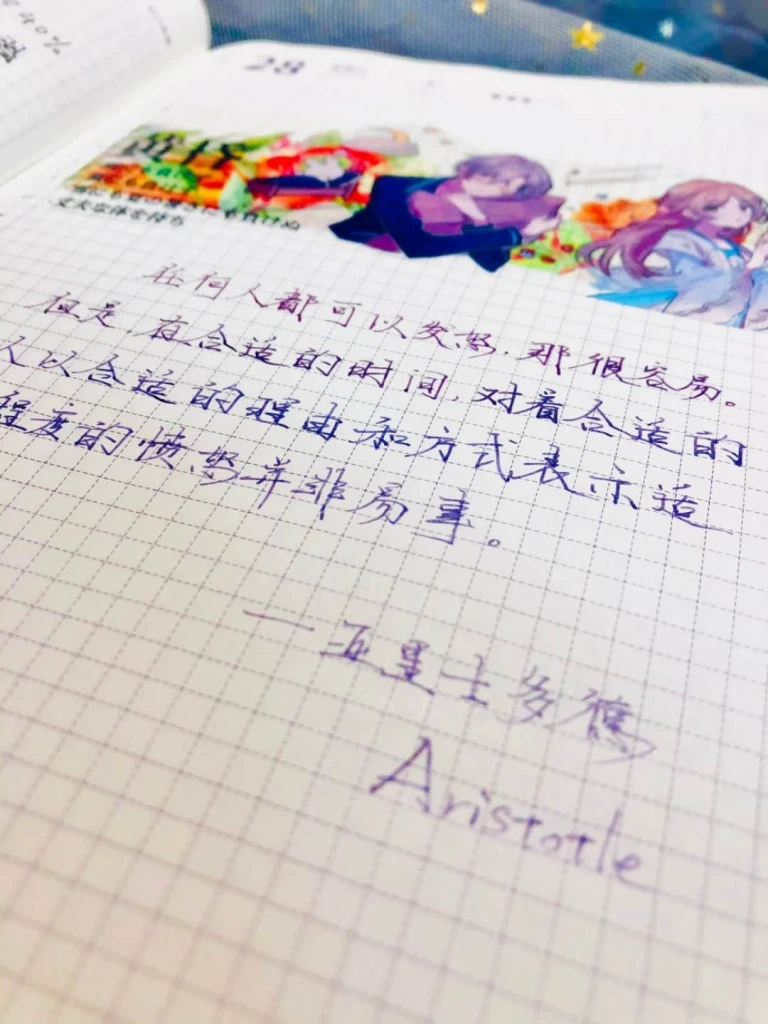 28
任何人都可以发怒，那很容易。
但是，在合适的时间，对着合适的
人以合适的理由和方式表示适
程度的愤怒并非易事。
—亚里士多德
Aristotle